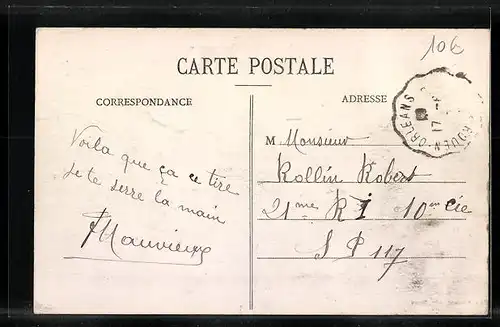 10€
CARTE POSTALE
CORRESPONDANCE
ADRESSE
ROUEN-ORLEANS
17
Voila que ça ce tire
Je te serre la main
Mauvieux
M Monsieur
Rollin Robert
21me R I 10em Cie
S P 117